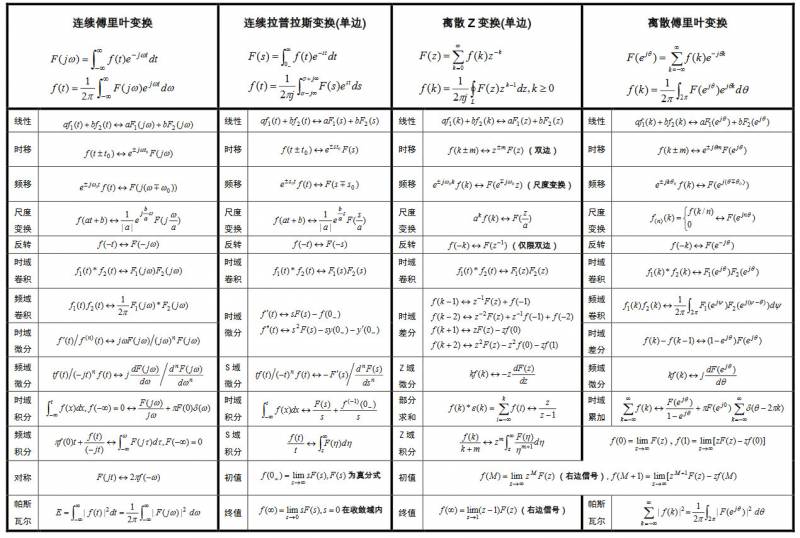 连续傅里叶变换
F(jω)=∫_{-∞}^{∞} f(t)e^{-jωt}dt
f(t)=\frac{1}{2π}∫_{-∞}^{∞} F(jω)e^{jωt}dω
连续拉普拉斯变换(单边)
F(s)=∫_{0_-}^{∞} f(t)e^{-st}dt
f(t)=\frac{1}{2πj}∫_{σ-j∞}^{σ+j∞} F(s)e^{st}ds
离散 Z 变换(单边)
F(z)=∑_{k=0}^{∞} f(k)z^{-k}
f(k)=\frac{1}{2πj}∮_L F(z)z^{k-1}dz,k≥0
离散傅里叶变换
F(e^{jθ})=∑_{k=-∞}^{∞} f(k)e^{-jθk}
f(k)=\frac{1}{2π}∫_{2π} F(e^{jθ})e^{jθk}dθ
线性 af₁(t)+bf₂(t)↔aF₁(jω)+bF₂(jω)
线性 af₁(t)+bf₂(t)↔aF₁(s)+bF₂(s)
线性 af₁(k)+bf₂(k)↔aF₁(z)+bF₂(z)
线性 af₁(k)+bf₂(k)↔aF₁(e^{jθ})+bF₂(e^{jθ})
时移 f(t±t₀)↔e^{±jωt₀}F(jω)
时移 f(t±t₀)↔e^{±st₀}F(s)
时移 f(k±m)↔z^{±m}F(z)（双边）
时移 f(k±m)↔e^{±jθm}F(e^{jθ})
频移 e^{±jω₀t}f(t)↔F(j(ω∓ω₀))
频移 e^{±s₀t}f(t)↔F(s∓s₀)
频移 e^{±jω₀k}f(k)↔F(e^{∓jω₀}z)（尺度变换）
频移 e^{±jkθ₀}f(k)↔F(e^{j(θ∓θ₀)})
尺度变换 f(at+b)↔\frac{1}{|a|}e^{j\frac{b}{a}ω}F(j\frac{ω}{a})
尺度变换 f(at+b)↔\frac{1}{|a|}e^{\frac{b}{a}s}F(\frac{s}{a})
尺度变换 a^k f(k)↔F(\frac{z}{a})
尺度变换 f_{(n)}(k)={f(k/n) 0 ↔F(e^{jnθ})
反转 f(-t)↔F(-jω)
反转 f(-t)↔F(-s)
反转 f(-k)↔F(z^{-1})（仅限双边）
反转 f(-k)↔F(e^{-jθ})
时域卷积 f₁(t)*f₂(t)↔F₁(jω)F₂(jω)
时域卷积 f₁(t)*f₂(t)↔F₁(s)F₂(s)
时域卷积 f₁(t)*f₂(t)↔F₁(z)F₂(z)
时域卷积 f₁(k)*f₂(k)↔F₁(e^{jθ})F₂(e^{jθ})
频域卷积 f₁(t)f₂(t)↔\frac{1}{2π}F₁(jω)*F₂(jω)
时域微分 f'(t)↔sF(s)-f(0_-)
f''(t)↔s²F(s)-sy(0_-)-y'(0_-)
时域差分 f(k-1)↔z^{-1}F(z)+f(-1)
f(k-2)↔z^{-2}F(z)+z^{-1}f(-1)+f(-2)
f(k+1)↔zF(z)-zf(0)
f(k+2)↔z²F(z)-z²f(0)-zf(1)
频域卷积 f₁(k)f₂(k)↔\frac{1}{2π}∫_{2π}F₁(e^{jψ})F₂(e^{j(ψ-θ)})dψ
时域微分 f'(t)/f^{(n)}(t)↔jωF(jω)/(jω)^nF(jω)
时域差分 f(k)-f(k-1)↔(1-e^{-jθ})F(e^{jθ})
频域微分 tf(t)/(-jt)^n f(t)↔j\frac{dF(jω)}{dω}/\frac{d^nF(jω)}{dω^n}
S 域微分 tf(t)/(-t)^n f(t)↔-F'(s)/\frac{d^nF(s)}{ds^n}
Z 域微分 kf(k)↔-z\frac{dF(z)}{dz}
频域微分 kf(k)↔j\frac{dF(e^{jθ})}{dθ}
时域积分 ∫_{-∞}^{t} f(x)dx,f(-∞)=0↔\frac{F(jω)}{jω}+πF(0)δ(ω)
时域积分 ∫_{-∞}^{t} f(x)dx↔\frac{F(s)}{s}+\frac{f^{(-1)}(0_-)}{s}
部分求和 f(k)*ε(k)=∑_{i=-∞}^{k} f(t)↔\frac{z}{z-1}
时域累加 ∑_{k=-∞}^{∞} f(k)↔\frac{F(e^{jθ})}{1-e^{jθ}}+πF(e^{j0})∑_{k=-∞}^{∞}δ(θ-2πk)
频域积分 πf(0)t+\frac{f(t)}{(-jt)}↔∫_{-∞}^{ω}F(jτ)dτ,F(-∞)=0
S 域积分 \frac{f(t)}{t}↔∫_{s}^{∞}F(η)dη
Z 域积分 \frac{f(k)}{k+m}↔z^m∫_{z}^{∞}\frac{F(η)}{η^{m+1}}dη
f(0)=lim_{z→∞}F(z)，f(1)=lim_{z→∞}[zF(z)-zf(0)]
对称 F(jt)↔2πf(-ω)
初值 f(0₊)=lim_{s→∞}sF(s),F(s) 为真分式
初值 f(M)=lim_{z→∞}z^M F(z)（右边信号），f(M+1)=lim_{z→∞}[z^{M+1}F(z)-zf(M)
帕斯瓦尔 E=∫_{-∞}^{∞}|f(t)|²dt=\frac{1}{2π}∫_{-∞}^{∞}|F(jω)|²dω
终值 f(∞)=lim_{s→0}sF(s),s=0 在收敛域内
终值 f(∞)=lim_{z→1}(z-1)F(z)（右边信号）
帕斯瓦尔 ∑_{k=-∞}^{∞}|f(k)|²=\frac{1}{2π}∫_{2π}|F(e^{jθ})|²dθ